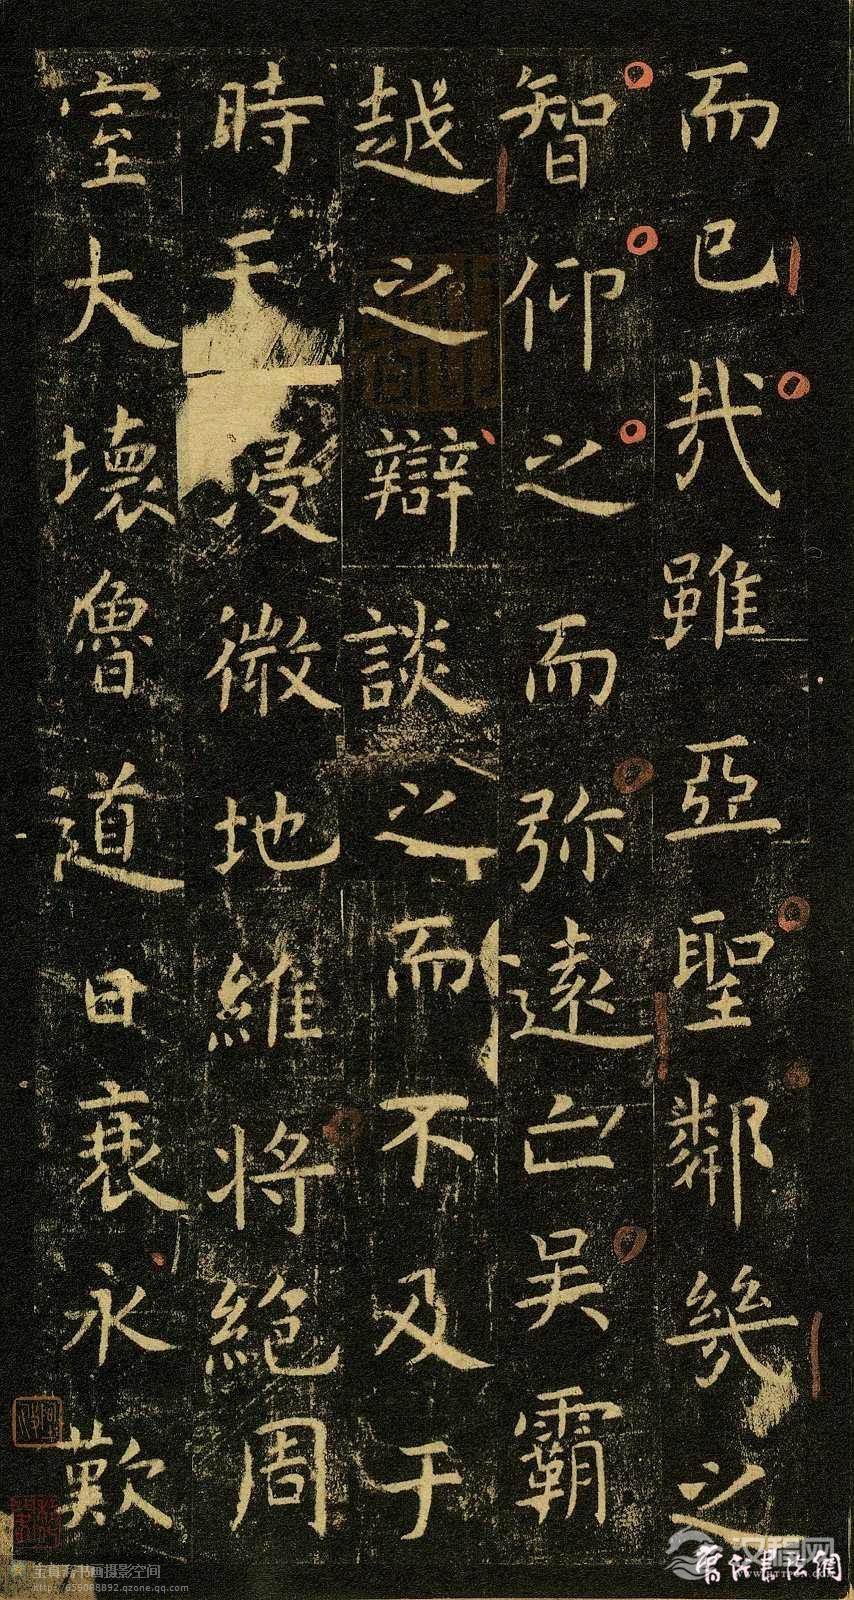 而已哉雖亞聖鄰幾之
智仰之而弥遠亡吴霸
越之辯談之而不及于
時天浸微地維將絕周
室大壞魯道日衰永歎
宝真斋书画摄影空间
http://659088892.qzone.qq.com
汉程网